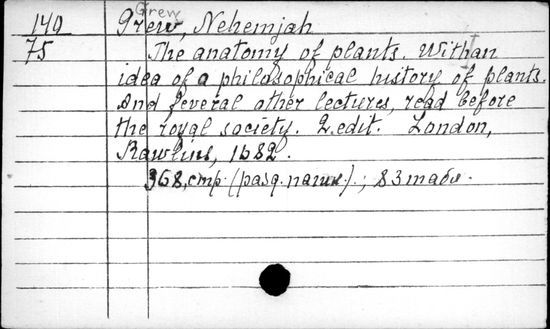 Grew
140 Grew, Nehemjah
75 The anatomy of plants. With an
idea of a philosophical history of plants.
And several other lectures, read before
the royal society. 2.edit. London,
Rawlins, 1682.
368, стр. (разд. паги.); 83 табл.